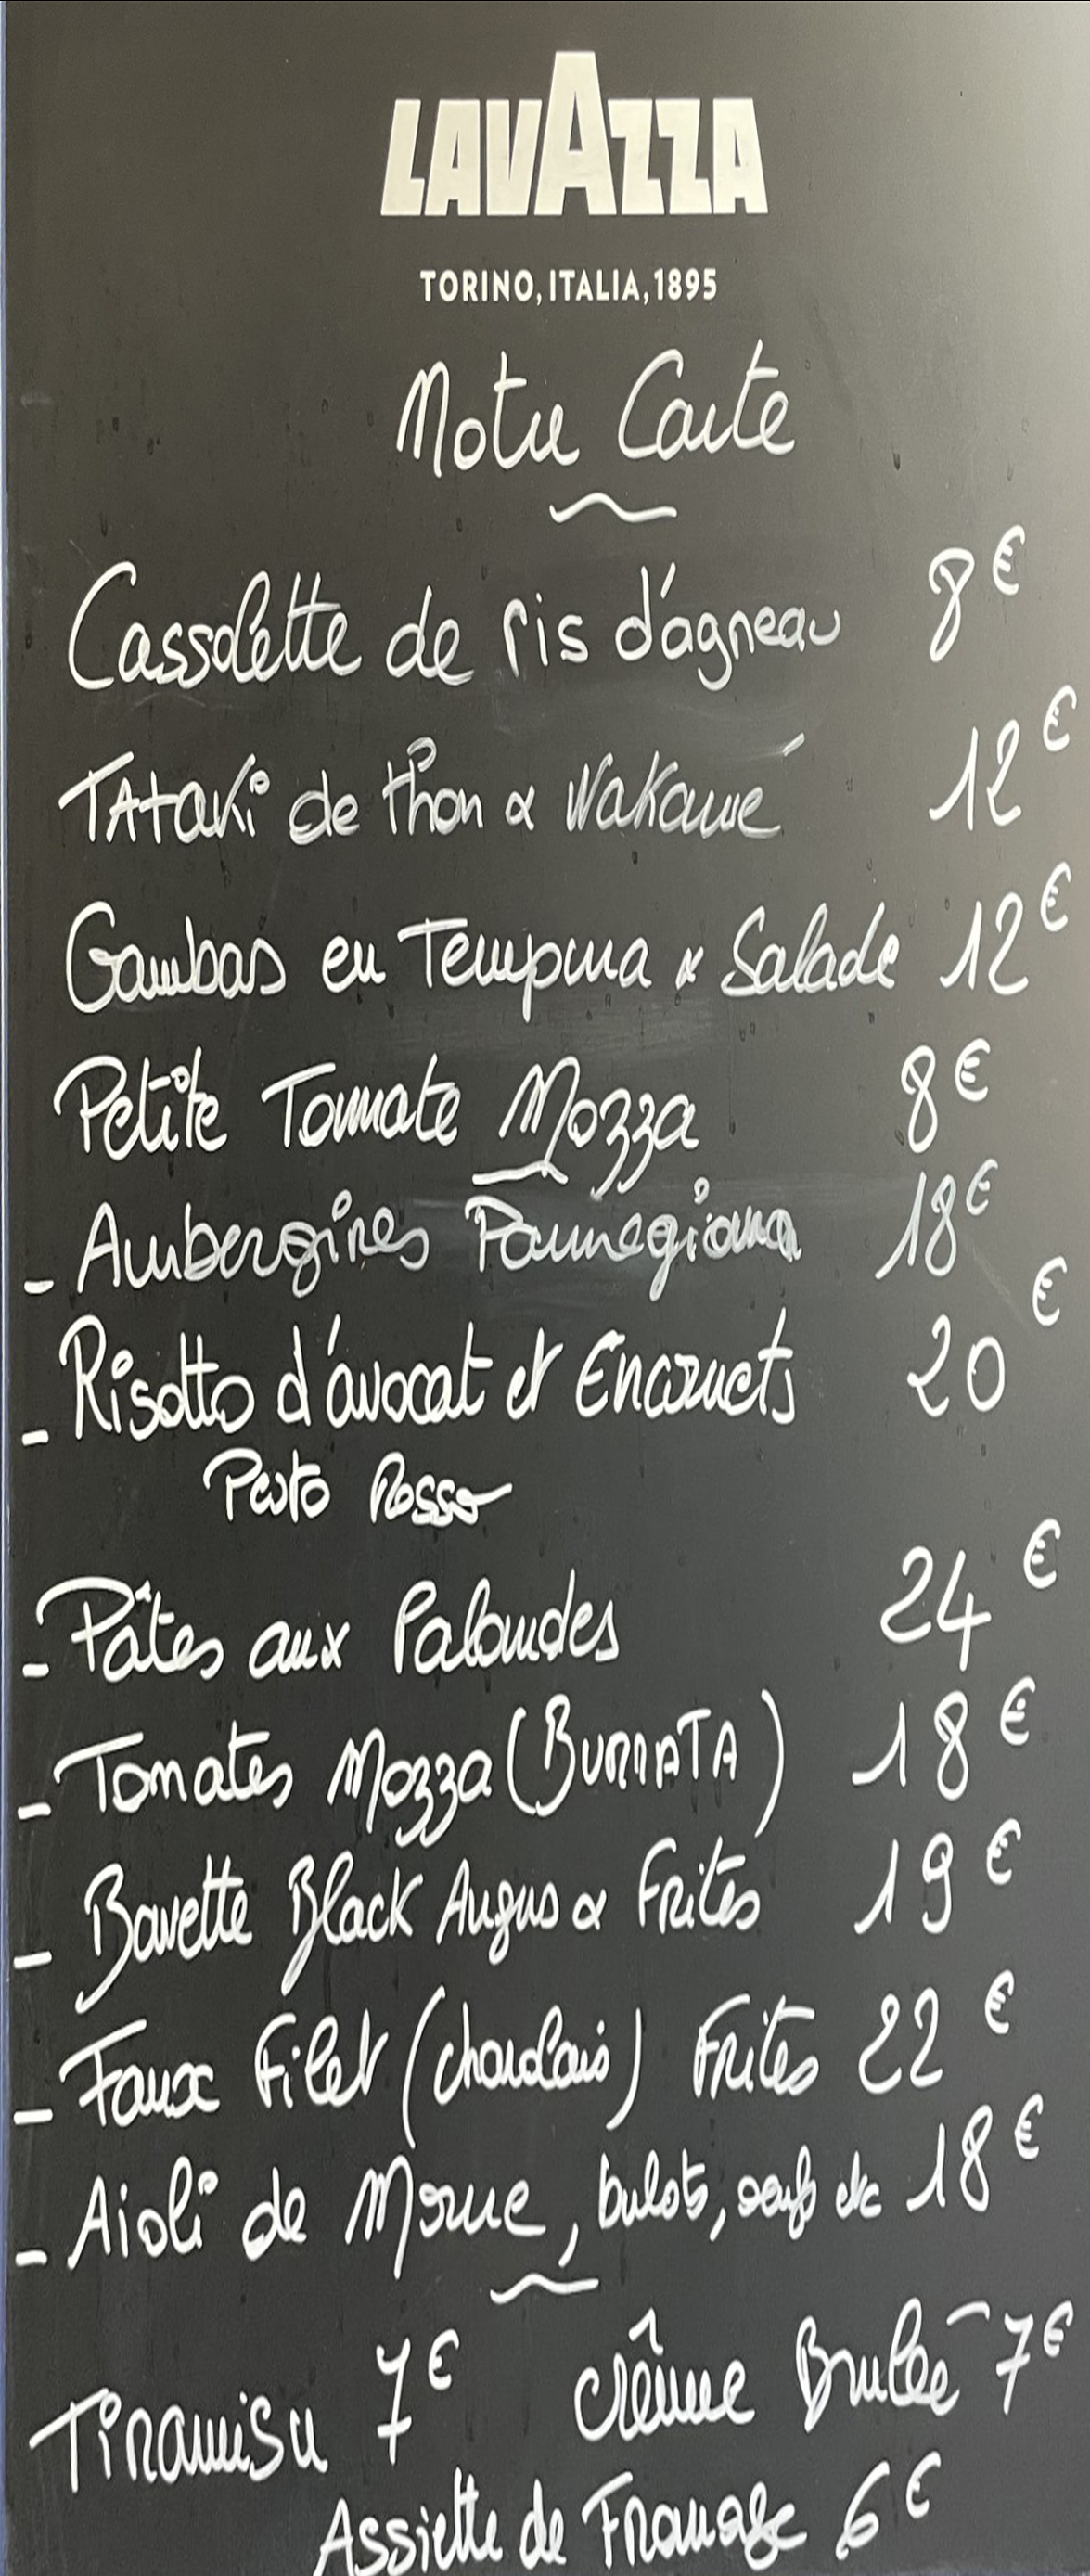 LAVAZZA
TORINO, ITALIA, 1895
Notre Carte
Cassolette de ris d'agneau 8€
TAtaki de thon & Wakamé 12€
Gambas en Tempura & Salade 12€
Petite Tomate Mozza 8€
- Aubergines Parmegiana 18€
- Risotto d'avocat et Encornets 20€
Pesto Rosso
- Pâtes aux Palourdes 24€
- Tomates Mozza (BURRATA) 18€
- Bavette Black Angus & Frites 19€
- Faux Filet (charolais) Frites 22€
- Aioli de Morue, bulots, oeufs etc 18€
Tiramisu 7€ crême Brulée 7€
Assiette de Fromage 6€